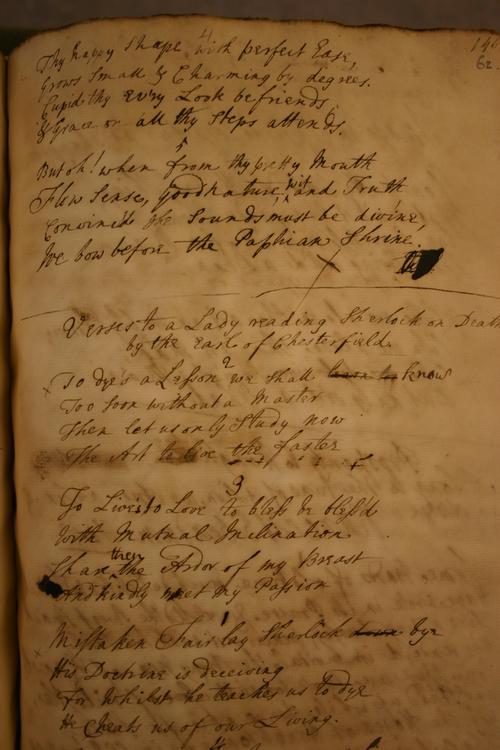 4
146
62
Thy happy Shape with perfect Ease,
Grows Small & Charming by degrees.
Cupid thy ev'ry Look befriends,
& Grace on all thy Steps attends.
5
But oh! when from thy pretty Mouth
Flow Sense, goodnature, wit and Truth
Convinc'd the Sounds must be divine,
We bow before the Paphian Shrine.
Verses to a Lady reading Sherlock on Death
by the Earl of Chesterfield.
2
To dye's a Lesson we shall know
Too Soon without a Master
Then let us only Study now
The Art to live the faster
3
To Live's to Love to bless be bless'd
With Mutual Inclination
Share then the Ardor of my Breast
And kindly meet my Passion
1
Mistaken Fair lay Sherlock bye
His Doctrine is deceiving
For Whilst he teaches us to dye
He Cheats us of our Living.